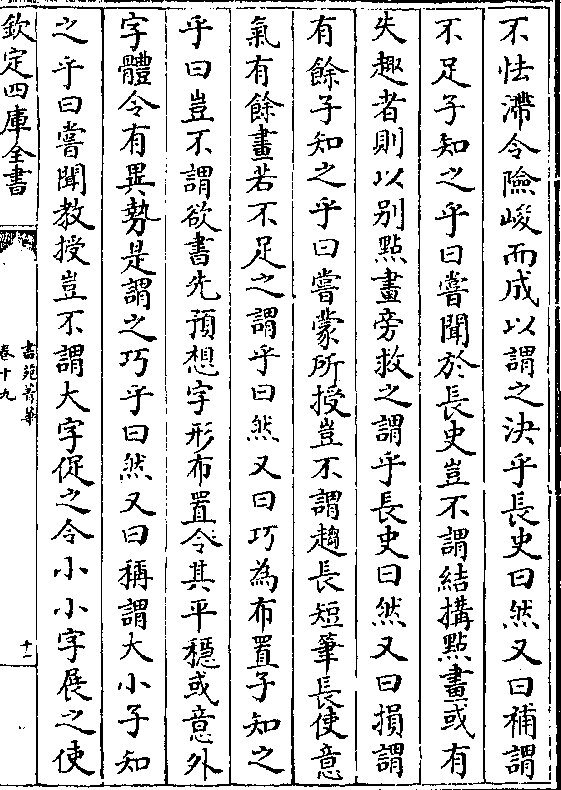 不怯滯令險峻而成以謂之決乎長史曰然又曰補謂
不足子知之乎曰嘗聞於長史豈不謂結搆點畫或有
失趣者則以别點畫旁救之謂乎長史曰然又曰損謂
有餘子知之乎曰嘗蒙所授豈不謂趨長短筆長使意
氣有餘畫若不足之謂乎曰然又曰巧為布置子知之
乎曰豈不謂欲書先預想字形布置令其平穩或意外
字體令有異勢是謂之巧乎曰然又曰稱謂大小子知
之乎曰嘗聞教授豈不謂大字促之令小小字展之使
欽定四庫全書
書苑菁華
卷十九
十一